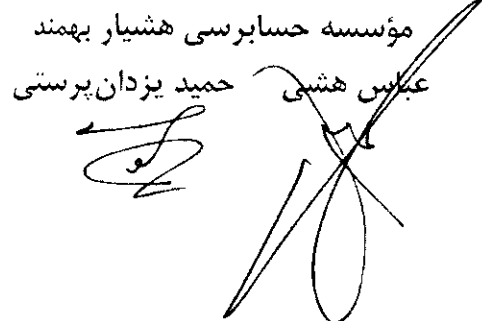 مؤسسه حسابرسی هشیار بهمند
عباس هشی حمید یزدان‌پرستی